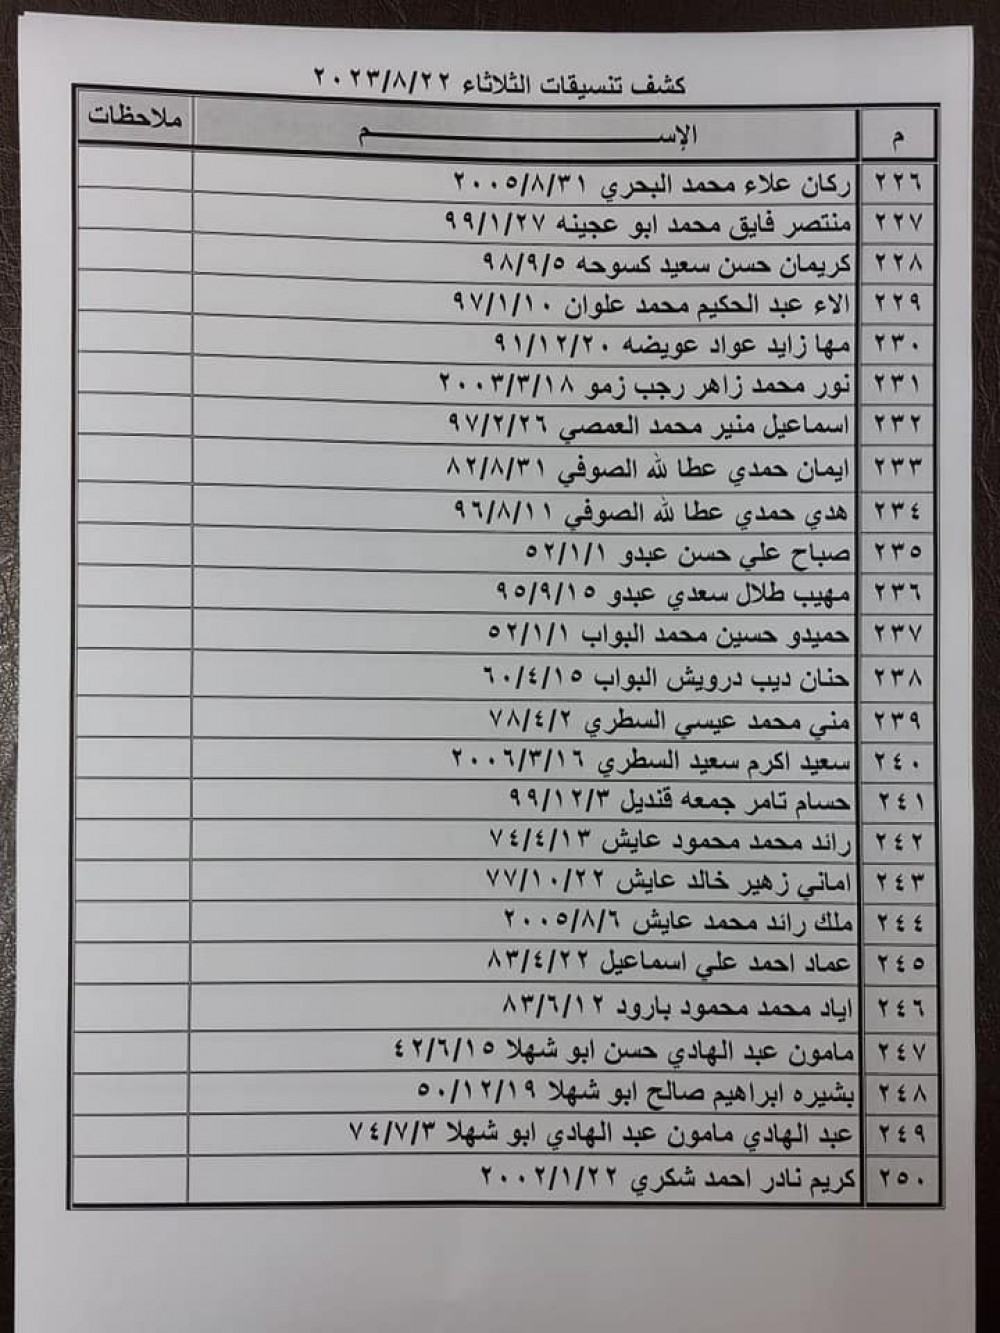 كشف تنسيقات الثلاثاء ٢٠٢٣/٨/٢٢
م الإســـــــــــم ملاحظات
٢٢٦ ركان علاء محمد البحري ٢٠٠٥/٨/٣١
٢٢٧ منتصر فايق محمد ابو عجينه ٩٩/١/٢٧
٢٢٨ كريمان حسن سعيد كسوحه ٩٨/٩/٥
٢٢٩ الاء عبد الحكيم محمد علوان ٩٧/١/١٠
٢٣٠ مها زايد عواد عويضه ٩١/١٢/٢٠
٢٣١ نور محمد زاهر رجب زمو ٢٠٠٣/٣/١٨
٢٣٢ اسماعيل منير محمد العمصي ٩٧/٢/٢٦
٢٣٣ ايمان حمدي عطا لله الصوفي ٨٢/٨/٣١
٢٣٤ هدي حمدي عطا لله الصوفي ٩٦/٨/١١
٢٣٥ صباح علي حسن عبدو ٥٢/١/١
٢٣٦ مهيب طلال سعدي عبدو ٩٥/٩/١٥
٢٣٧ حميدو حسين محمد البواب ٥٢/١/١
٢٣٨ حنان ديب درويش البواب ٦٠/٤/١٥
٢٣٩ مني محمد عيسي السطري ٧٨/٤/٢
٢٤٠ سعيد اكرم سعيد السطري ٢٠٠٦/٣/١٦
٢٤١ حسام تامر جمعه قنديل ٩٩/١٢/٣
٢٤٢ رائد محمد محمود عايش ٧٤/٤/١٣
٢٤٣ اماني زهير خالد عايش ٧٧/١٠/٢٢
٢٤٤ ملك رائد محمد عايش ٢٠٠٥/٨/٦
٢٤٥ عماد احمد علي اسماعيل ٨٣/٤/٢٢
٢٤٦ اياد محمد محمود بارود ٨٣/٦/١٢
٢٤٧ مامون عبد الهادي حسن ابو شهلا ٤٢/٦/١٥
٢٤٨ بشيره ابراهيم صالح ابو شهلا ٥٠/١٢/١٩
٢٤٩ عبد الهادي مامون عبد الهادي ابو شهلا ٧٤/٧/٣
٢٥٠ كريم نادر احمد شكري ٢٠٠٢/١/٢٢